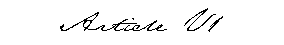 Article VI